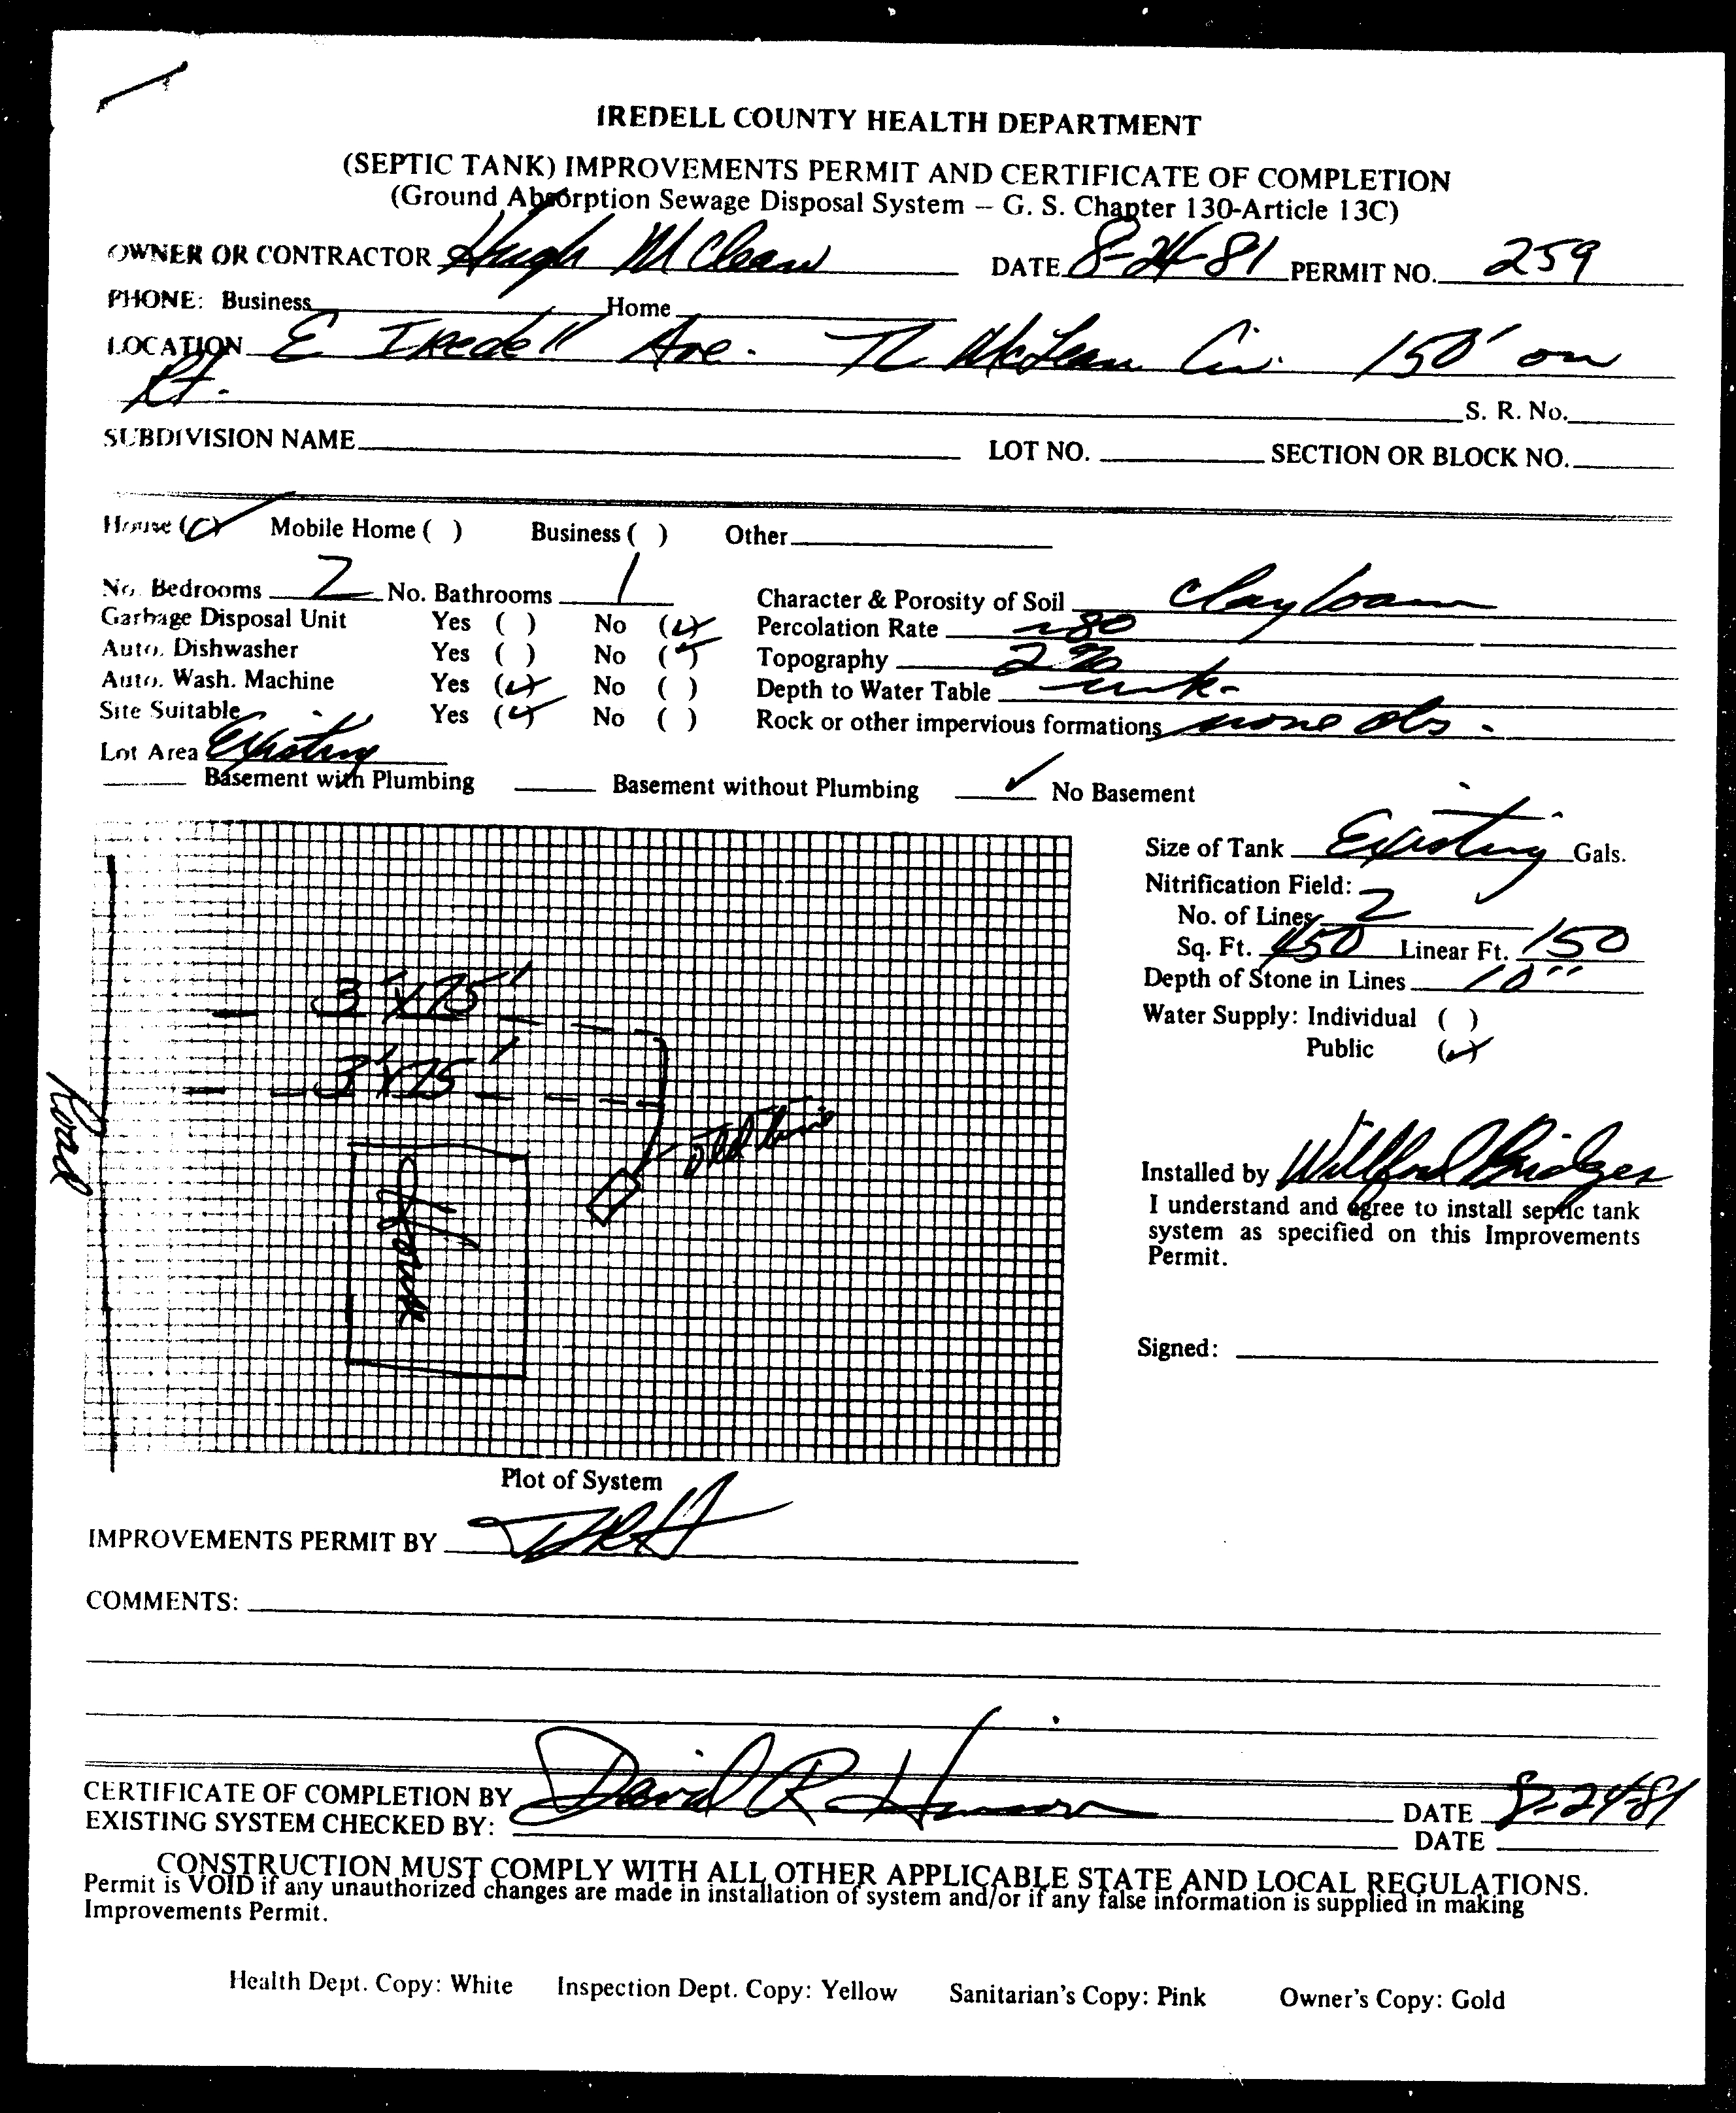 IREDELL COUNTY HEALTH DEPARTMENT
(SEPTIC TANK) IMPROVEMENTS PERMIT AND CERTIFICATE OF COMPLETION
(Ground Absorption Sewage Disposal System – G. S. Chapter 130-Article 13C)
OWNER OR CONTRACTOR Hugh McClean DATE 8-24-81 PERMIT NO. 259
PHONE: Business Home
LOCATION E Iredell Ave. TL McLean Cir. 150' on
Rt.
S. R. No.
SUBDIVISION NAME LOT NO. SECTION OR BLOCK NO.
House (✓) Mobile Home ( ) Business ( ) Other
No. Bedrooms 2 No. Bathrooms 1 Character & Porosity of Soil Clay loam
Garbage Disposal Unit Yes ( ) No (✓) Percolation Rate ~80
Auto. Dishwasher Yes ( ) No (✓) Topography 2%
Auto. Wash. Machine Yes (✓) No ( ) Depth to Water Table unk.
Site Suitable Yes (✓) No ( ) Rock or other impervious formations none obs.
Lot Area Existing
Basement with Plumbing Basement without Plumbing ✓ No Basement
Size of Tank Existing Gals.
Nitrification Field:
No. of Lines 2
Sq. Ft. 450 Linear Ft. 150
Depth of Stone in Lines 10"
Water Supply: Individual ( )
Public (✓)
3'x75'
3'x75'
Road
old line
House
Installed by Willford Bridges
I understand and agree to install septic tank
system as specified on this Improvements
Permit.
Signed:
Plot of System
IMPROVEMENTS PERMIT BY DRH
COMMENTS:
CERTIFICATE OF COMPLETION BY David R. DATE 8-24-81
EXISTING SYSTEM CHECKED BY: DATE
CONSTRUCTION MUST COMPLY WITH ALL OTHER APPLICABLE STATE AND LOCAL REGULATIONS.
Permit is VOID if any unauthorized changes are made in installation of system and/or if any false information is supplied in making
Improvements Permit.
Health Dept. Copy: White Inspection Dept. Copy: Yellow Sanitarian's Copy: Pink Owner's Copy: Gold